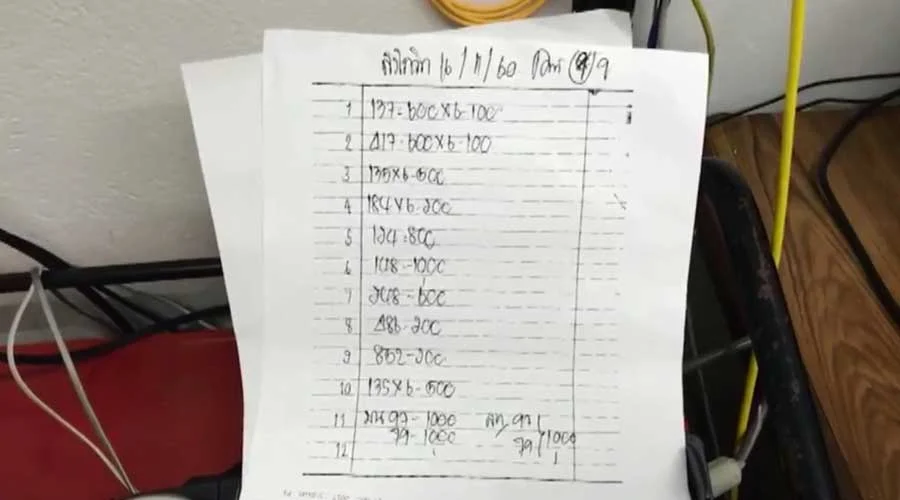 16/11/60 (9)/9
1 137=600×6-100
2 417-600×6-100
3 135×6-500
4 184×6-200
5 124=800
6 148-1000
7 248-600
8 486-200
9 852-200
10 135×6-500
11 บน 97-1000 ล่าง 97
79-1000 79 1000
12